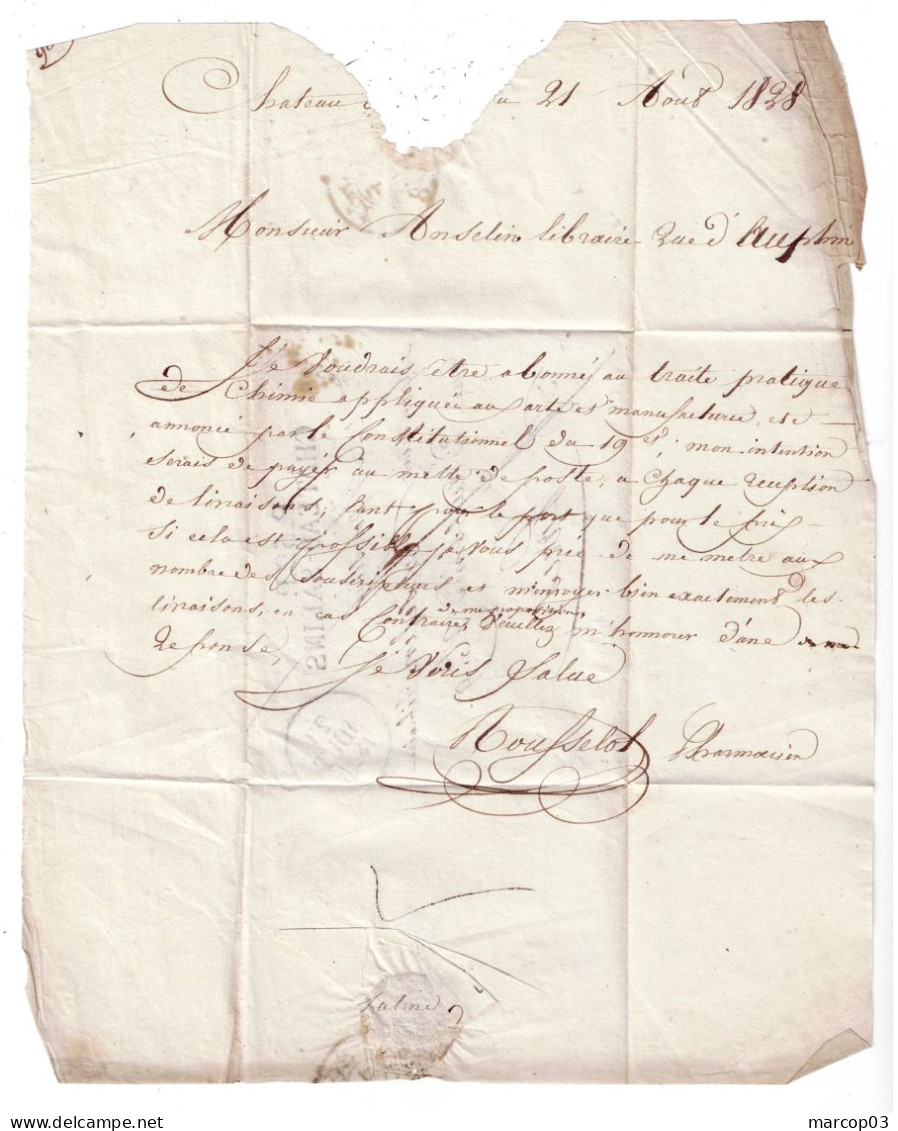 Chateau u 21 Aout 1828
Monsieur Anselin libraire rue d'auphin
Je voudrais être abonné au traite pratique
de Chimie appliquée aux arts et manufacture, et
annoncé par le Constitutionnel du 19 et; mon intention
serais de payér au mettre de poste, a chaque reception
de livraisons, tant pour le port que pour le prix
si cela est possible, je vous prie de me metre aux
nombre des souscripteurs et m'envoyer bien exactement les
livraisons, en cas contraire, veuillez m'honnorer d'une
reponse,
Je vous salue
Rousselot Pharmacien
Saline
CHATEAU
SALINS
marcop03